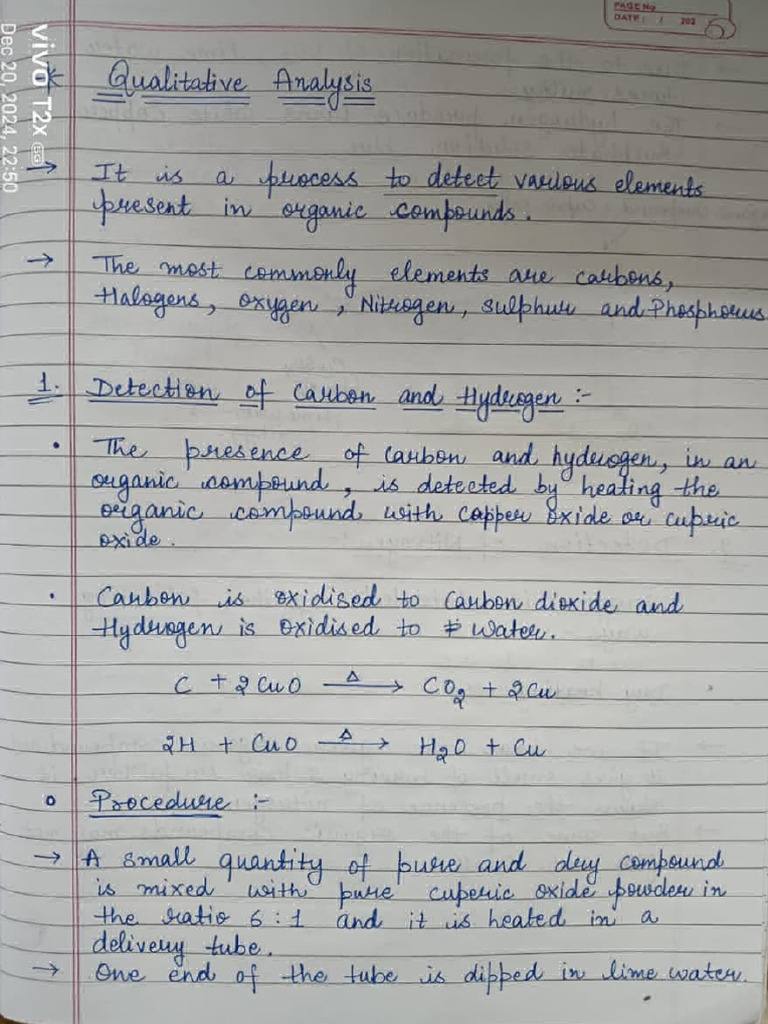 PAGE No
DATE: / / 202
vivo T2x 5G
Dec 20, 2024, 22:50
* Qualitative Analysis
→ It is a process to detect various elements
present in organic compounds.
→ The most commonly elements are carbons,
Halogens, oxygen, Nitrogen, sulphur and Phosphorus
1. Detection of Carbon and Hydrogen :-
• The presence of carbon and hydrogen, in an
organic compound, is detected by heating the
organic compound with copper oxide or cupric
oxide.
• Carbon is oxidised to Carbon dioxide and
Hydrogen is oxidised to water.
C + 2CuO —Δ→ CO₂ + 2Cu
2H + CuO —Δ→ H₂O + Cu
o Procedure :-
→ A small quantity of pure and dry compound
is mixed with pure cuperic oxide powder in
the ratio 6:1 and it is heated in a
delivery tube.
→ One end of the tube is dipped in lime water.